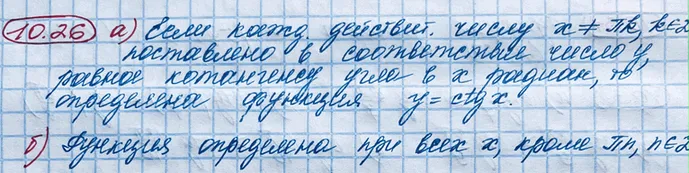 10.26 а) Если кажд. действит. числу x ≠ πk, k∈Z
поставлено в соответствие число y,
равное котангенсу угла в x радиан, то
определена функция y = ctg x.
б) Функция определена при всех x, кроме πn, n∈Z